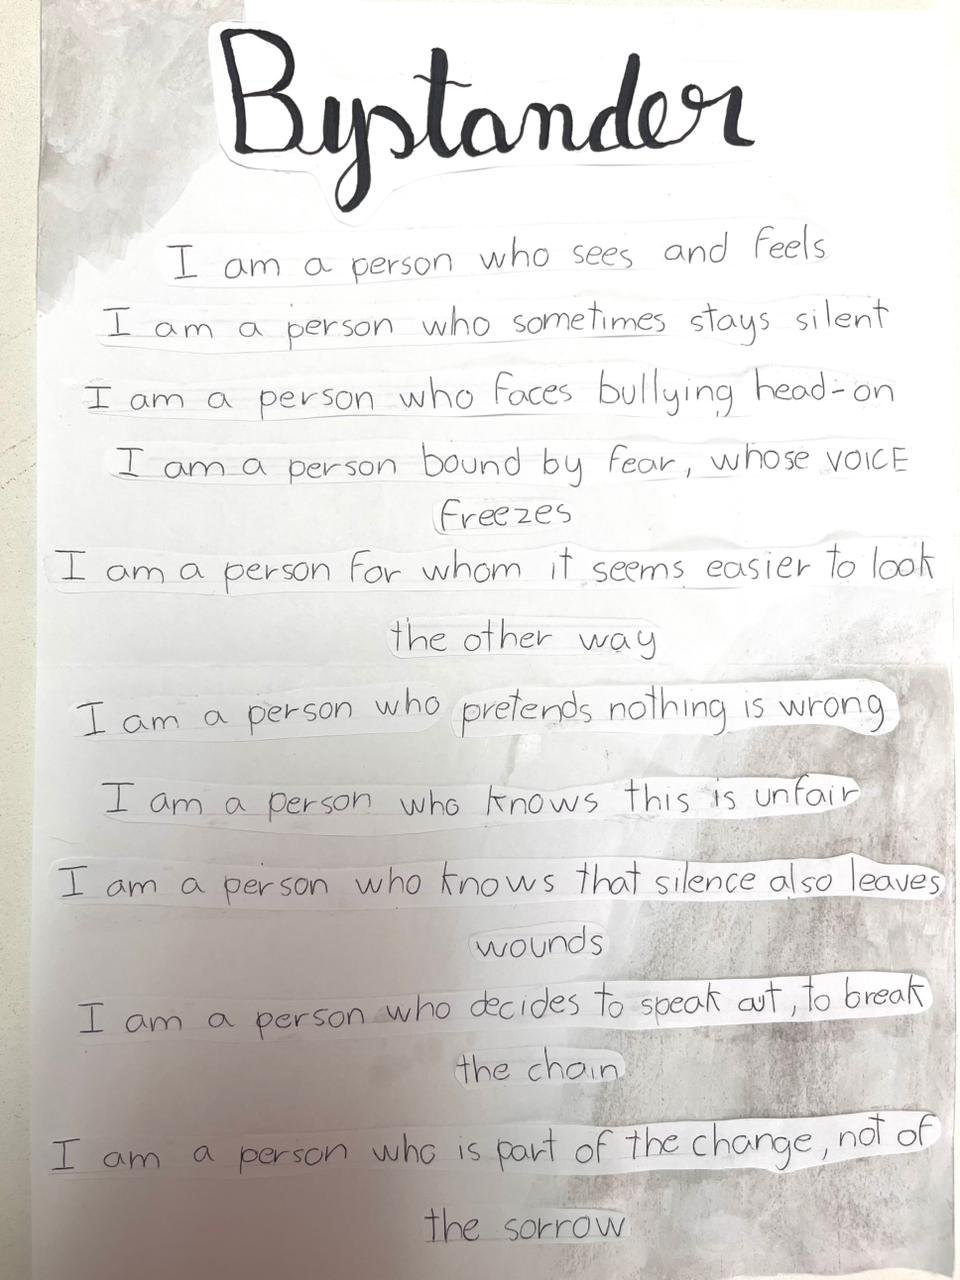 Bystander
I am a person who sees and feels
I am a person who sometimes stays silent
I am a person who faces bullying head-on
I am a person bound by fear, whose VOICE
freezes
I am a person for whom it seems easier to look
the other way
I am a person who pretends nothing is wrong
I am a person who knows this is unfair
I am a person who knows that silence also leaves
wounds
I am a person who decides to speak out, to break
the chain
I am a person who is part of the change, not of
the sorrow